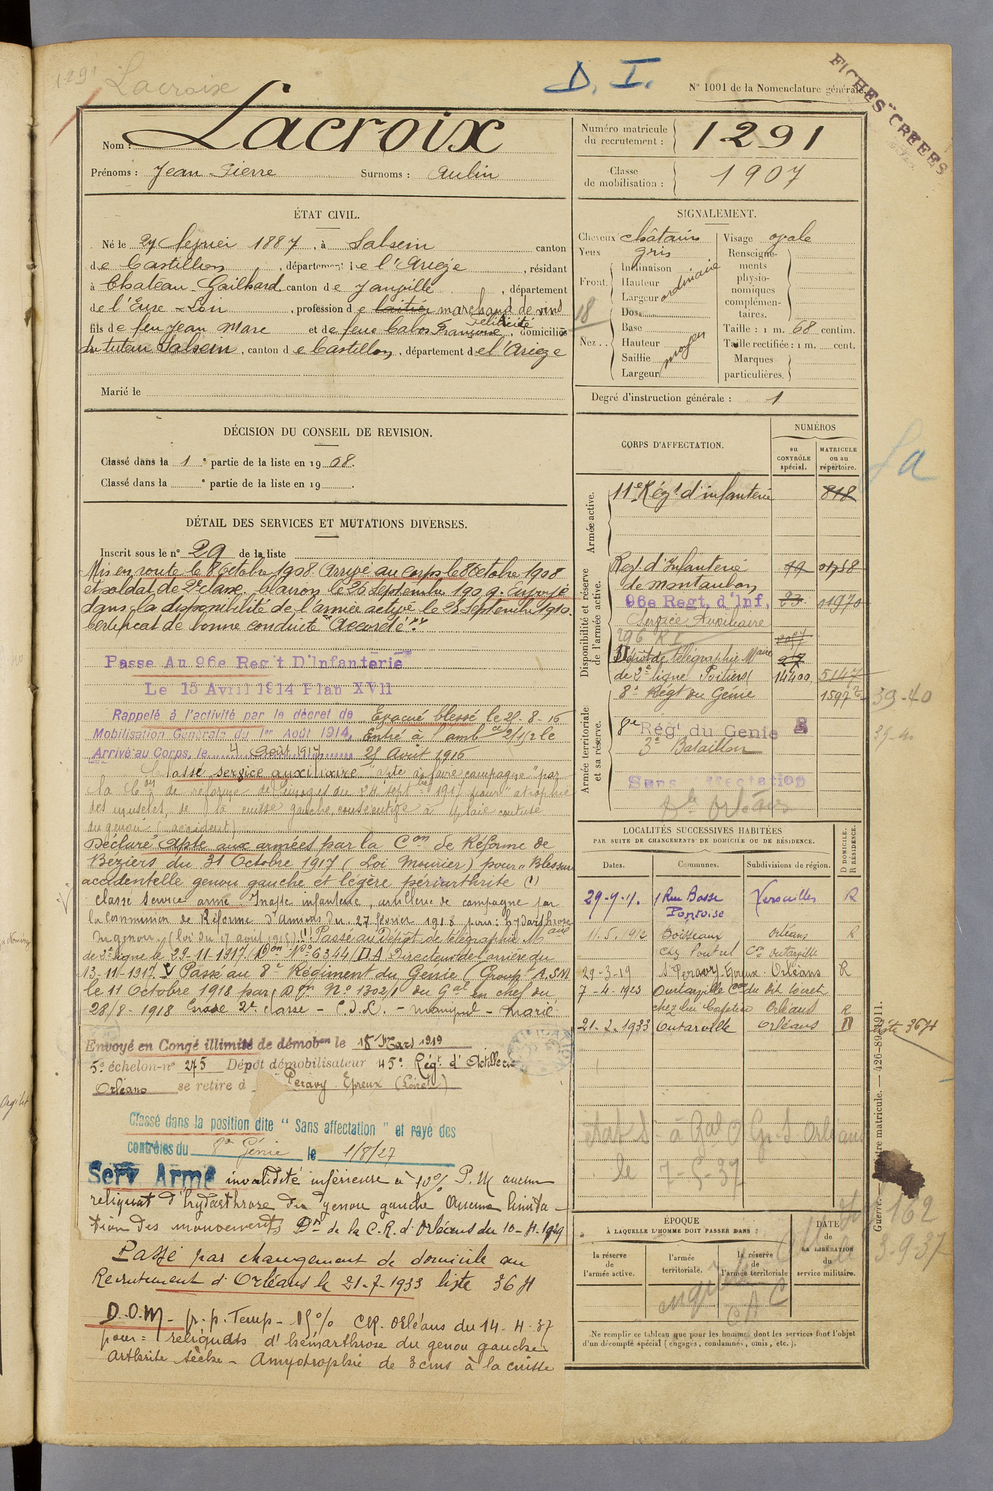 1291 Lacroix
D. I.
N° 1001 de la Nomenclature générale.
FICHES CRÉÉES
Nom : Lacroix
Prénoms : Jean Pierre Surnoms : Aulin
Numéro matricule du recrutement : 1291
Classe de mobilisation : 1907
ÉTAT CIVIL.
Né le 27 février 1887, à Salsein canton
de Castillon, département de l'Ariège, résidant
à Chateau-Gaillard canton de Janville, département
de l'Eure-Loir, profession de laitier marchand de vins
fils de feu Jean Marc et de feue Françoise félicité, domiciliés
du tuteur Salsein, canton de Castillon, département de l'Ariège
Marié le
SIGNALEMENT.
Cheveux châtains
Yeux gris
Front. Inclinaison
Hauteur
Largeur
ordinaire
Nez . . Dos
Base
Hauteur
Saillie
Largeur
moyen
Visage ovale
Renseignements physionomiques complémentaires.
Taille : 1 m. 68 centim.
Taille rectifiée : 1 m. cent.
Marques particulières.
18
Degré d'instruction générale : 1
DÉCISION DU CONSEIL DE REVISION.
Classé dans la 1e partie de la liste en 1908.
Classé dans la e partie de la liste en 19 .
CORPS D'AFFECTATION.
NUMÉROS
au CONTRÔLE spécial.
MATRICULE ou au répertoire.
Armée active.
11e Régt d'infanterie 818
Disponibilité et réserve de l'armée active.
Regt d'Infanterie
de Montauban
96e Regt. d'Inf. 23 01970
Service Auxiliaire
296 R I
Dépôt de Télégraphie Mre
de 2e ligne Poitiers 14400 5147
8e Régt du Génie 1597
39-40
Armée territoriale et sa réserve.
8e Rég. du Genie 8
3e Bataillon
Sans affectation
Orléans
La
DÉTAIL DES SERVICES ET MUTATIONS DIVERSES.
Inscrit sous le n° 29 de la liste
Mis en route le 8 octobre 1908. Arrivé au corps le 8 octobre 1908
et soldat de 2e classe. le 26 septembre 1909. Envoyé
dans la disponibilité de l'armée active le 25 septembre 1910.
Certificat de bonne conduite "Accordé"
Passe Au 96e Regt D'Infanterie
Le 15 Avril 1914 Plan XVII
Rappelé à l'activité par le décret de Evacué blessé le 25-8-16
Mobilisation Générale du 1er Août 1914, Entré à l'amb ce 2/1/2 le
Arrivé au Corps, le 4 Août 1914 25 Août 1916
Classé service auxiliaire apte à faire campagne par
la Con de réforme de Limoges du 24 sept 1917 pour atrophie
des muscles de la cuisse gauche consécutive à plaie contuse
du genou (accident)
Déclaré Apte aux armées par la Con de Réforme de
Béziers du 31 Octobre 1917 (Loi Mourier) pour Blessure
accidentelle genou gauche et légère périarthrite (1)
classé service armé Inapte infanterie, artillerie de campagne par
la Commission de Réforme d'Amiens du 27 février 1918 pour : hydarthrose
du genou (loi du 17 août 1915) (1) Passé au Dépôt de télégraphie Mre
de 2e ligne le 22-11-1917 Don N° 6344/DA Directeur de l'arrière du
13-11-1917. Passé au 8e Régiment du Génie (Group A.S.M
le 11 Octobre 1918 par Don N° 1302/1 du Gal en chef du
28/8-1918 Grade 2e classe - C.D.L. - manipul - Marié
Envoyé en Congé illimité de démobon le 18 Mars 1919
5e échelon-n° 275 Dépôt démobilisateur 45e Rég. d'Artillerie
Orléans se retire à Peravy-Epreux (Loiret)
Classé dans la position dite " Sans affectation " et rayé des
contrôles du 8e Génie le 1/8/27
Serv Armé invalidité inférieure à 10% P.M aucun
reliquat d'hydarthrose du genou gauche Aucune limita-
tion des mouvements Don de la C.R. d'Orléans du 10-4-1929
Passé par changement de domicile au
Recrutement d'Orléans le 21-7-1933 liste 3674
D.O.M - p.p. Temp - 15% C.R. Orléans du 14-4-37
pour : reliquats d'hémarthrose du genou gauche
arthrite sèche - Amyotrophie de 3 cms à la cuisse
LOCALITÉS SUCCESSIVES HABITÉES
PAR SUITE DE CHANGEMENTS DE DOMICILE OU DE RÉSIDENCE.
Dates. Communes. Subdivisions de région. D DOMICILE. R RÉSIDENCE.
29-9-11. 1 Rue Basse Pontoise Versailles R
11.5.1912 Boisseaux Orléans R
29-3-19 St Peravy-Epreux Orléans R
7-4-1923 Outarville Con du dit Loiret
chez lui Cafetier Orléans R
21-2-1933 Outarville Orléans D liste 3674
Etat S - à Gal O Gr. S Orléans
le 7-5-37
162
3-9-37
ÉPOQUE
À LAQUELLE L'HOMME DOIT PASSER DANS :
la réserve de l'armée active.
l'armée territoriale.
la réserve de l'armée territoriale
DATE de SA LIBÉRATION du service militaire.
Ne remplir ce tableau que pour les hommes dont les services font l'objet
d'un décompte spécial (engagés, condamnés, omis, etc.).